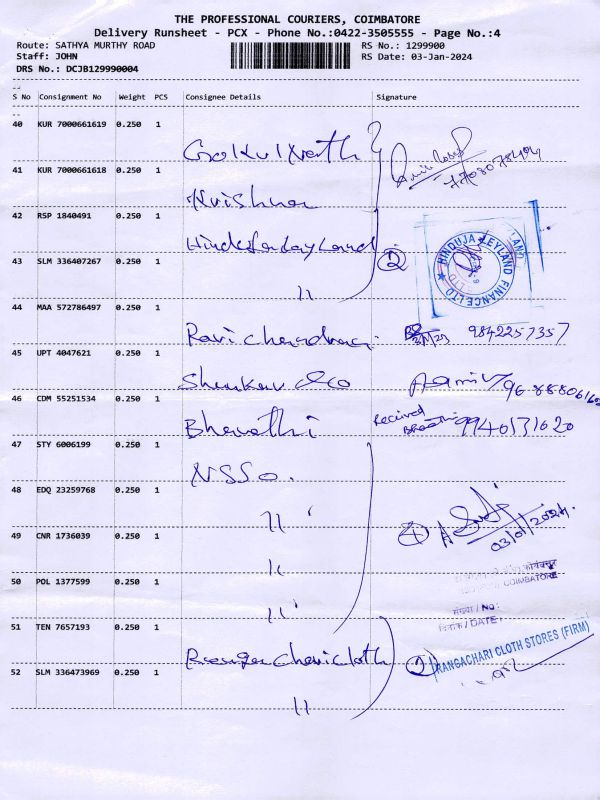 THE PROFESSIONAL COURIERS, COIMBATORE
Delivery Runsheet - PCX - Phone No.:0422-3505555 - Page No.:4
Route: SATHYA MURTHY ROAD RS No.: 1299900
Staff: JOHN RS Date: 03-Jan-2024
DRS No.: DCJB129990004
S No Consignment No Weight PCS Consignee Details Signature
40 KUR 7000661619 0.250 1
Gokulnath
41 KUR 7000661618 0.250 1
Krishna
42 RSP 1840491 0.250 1
Hinduja Leyland
HINDUJA LEYLAND FINANCE LTD
43 SLM 336407267 0.250 1
②
"
44 MAA 572786497 0.250 1
Ravichandran 9842257357
45 UPT 4047621 0.250 1
Shankar & Co
46 CDM 55251534 0.250 1
Bharathi Recived Bharathi 9940131620
47 STY 6006199 0.250 1
NSSO.
48 EDQ 23259768 0.250 1
"
49 CNR 1736039 0.250 1
④ 03/01/2024
"
50 POL 1377599 0.250 1
COIMBATORE
संख्या / No :
दिनांक / DATE :
"
51 TEN 7657193 0.250 1
Rangachari cloth
② RANGACHARI CLOTH STORES (FIRM)
52 SLM 336473969 0.250 1
"